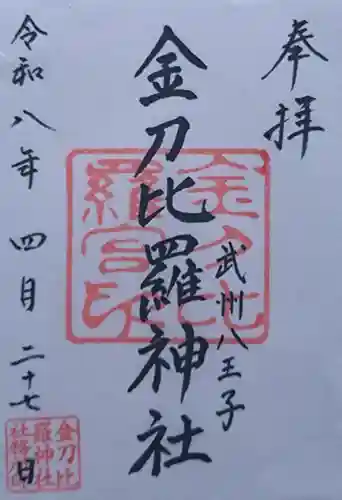 奉拝
武州八王子
金刀比羅神社
令和八年 四月 二十七日
金刀比羅宮印
金刀比
羅神社